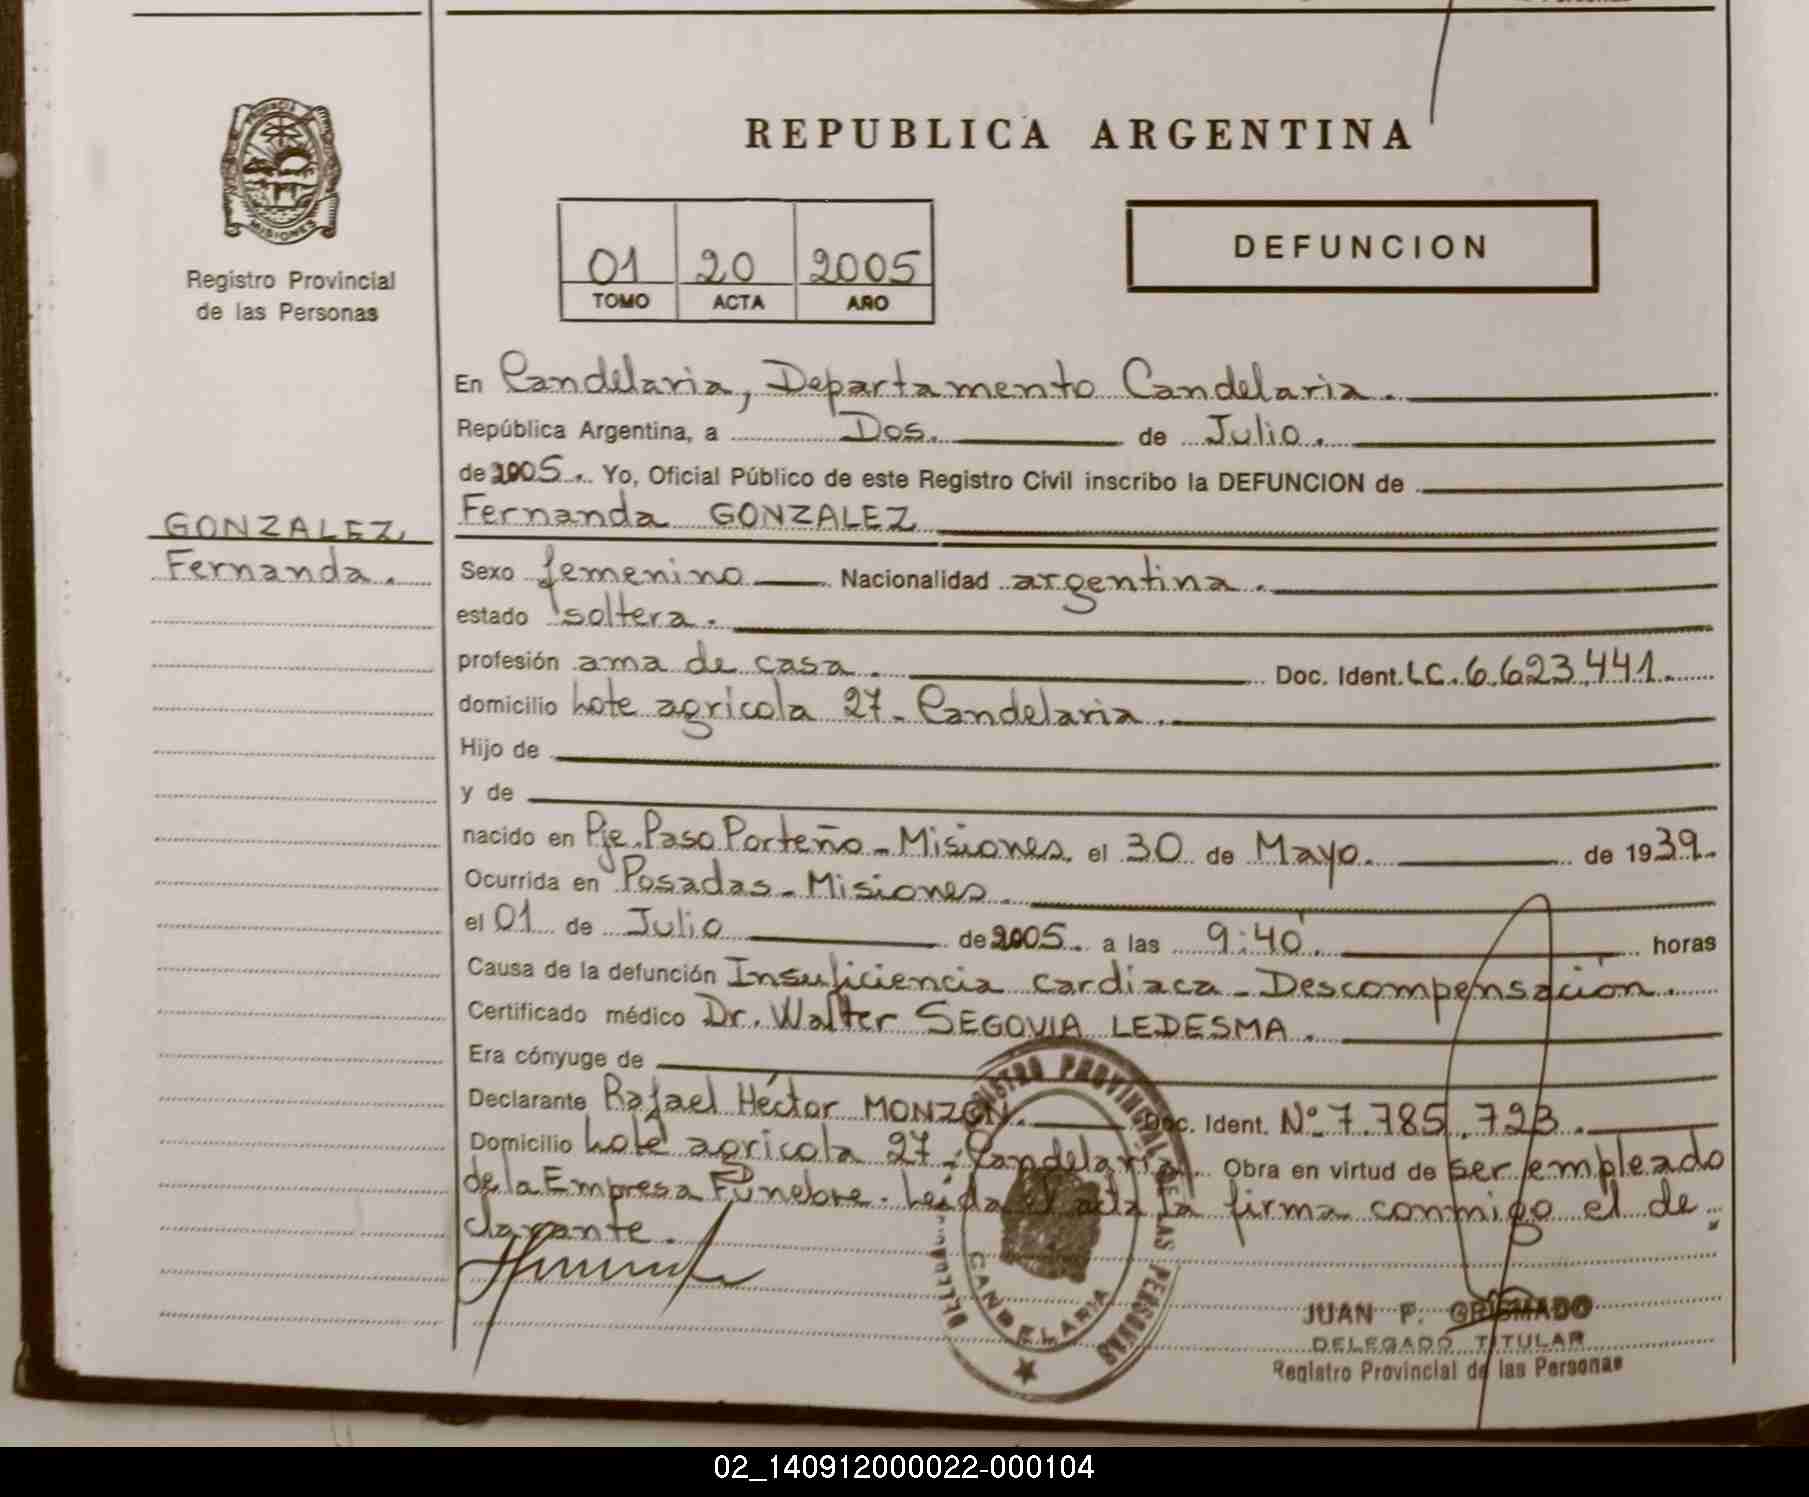 REPUBLICA ARGENTINA
PROVINCIA
MISIONES
Registro Provincial
de las Personas
01 20 2005
TOMO ACTA AÑO
DEFUNCION
En Candelaria, Departamento Candelaria.
República Argentina, a Dos. de Julio.
de 2005. Yo, Oficial Público de este Registro Civil inscribo la DEFUNCION de
GONZALEZ
Fernanda.
Fernanda GONZALEZ
Sexo femenino Nacionalidad argentina.
estado soltera.
profesión ama de casa. Doc. Ident. LC. 6.623.441.
domicilio Lote agricola 27 - Candelaria.
Hijo de
y de
nacido en Pje. Paso Porteño - Misiones. el 30 de Mayo. de 1939.
Ocurrida en Posadas - Misiones.
el 01 de Julio de 2005. a las 9:40'. horas
Causa de la defunción Insuficiencia cardiaca - Descompensación.
Certificado médico Dr. Walter SEGOVIA LEDESMA.
Era cónyuge de
Declarante Rafael Héctor MONZON. Doc. Ident. Nº 7.785.723.
Domicilio Lote agricola 27 - Candelaria. Obra en virtud de ser empleado
de la Empresa Fúnebre. Leida el acta la firma conmigo el de
clarante.
REGISTRO PROVINCIAL DE LAS PERSONAS
CANDELARIA
JUAN F. GRISMADO
DELEGADO TITULAR
Registro Provincial de las Personas
02_140912000022-000104